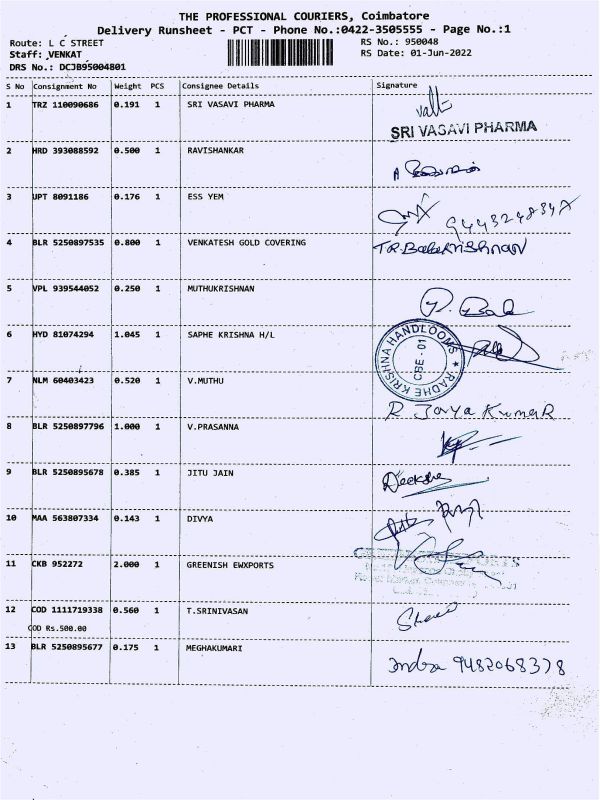 THE PROFESSIONAL COURIERS, Coimbatore
Delivery Runsheet - PCT - Phone No.:0422-3505555 - Page No.:1
Route: L C STREET RS No.: 950048
Staff: VENKAT RS Date: 01-Jun-2022
DRS No.: DCJB95004801
S No Consignment No Weight PCS Consignee Details Signature
1 TRZ 110090686 0.191 1 SRI VASAVI PHARMA
SRI VASAVI PHARMA
2 HRD 393088592 0.500 1 RAVISHANKAR
3 UPT 8091186 0.176 1 ESS YEM
4 BLR 5250897535 0.800 1 VENKATESH GOLD COVERING T.R.Balakrishnan
5 VPL 939544052 0.250 1 MUTHUKRISHNAN
P. Bala
6 HYD 81074294 1.045 1 SAPHE KRISHNA H/L
RADHE KRISHNA HANDLOOMS
CBE - 01
7 NLM 60403423 0.520 1 V.MUTHU
R Jaya KumaR
8 BLR 5250897796 1.000 1 V.PRASANNA
9 BLR 5250895678 0.385 1 JITU JAIN
10 MAA 563807334 0.143 1 DIVYA
11 CKB 952272 2.000 1 GREENISH EWXPORTS
12 COD 1111719338 0.560 1 T.SRINIVASAN
COD Rs.500.00
13 BLR 5250895677 0.175 1 MEGHAKUMARI
Indra 9482068378